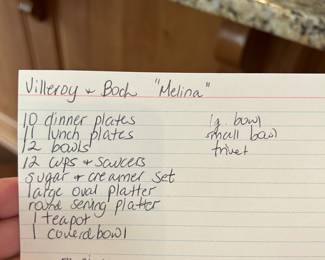 Villeroy + Boch "Melina"
10 dinner plates
11 lunch plates
12 bowls
12 cups + saucers
sugar + creamer set
large oval platter
round serving platter
1 teapot
1 covered bowl
lg bowl
small bowl
trivet